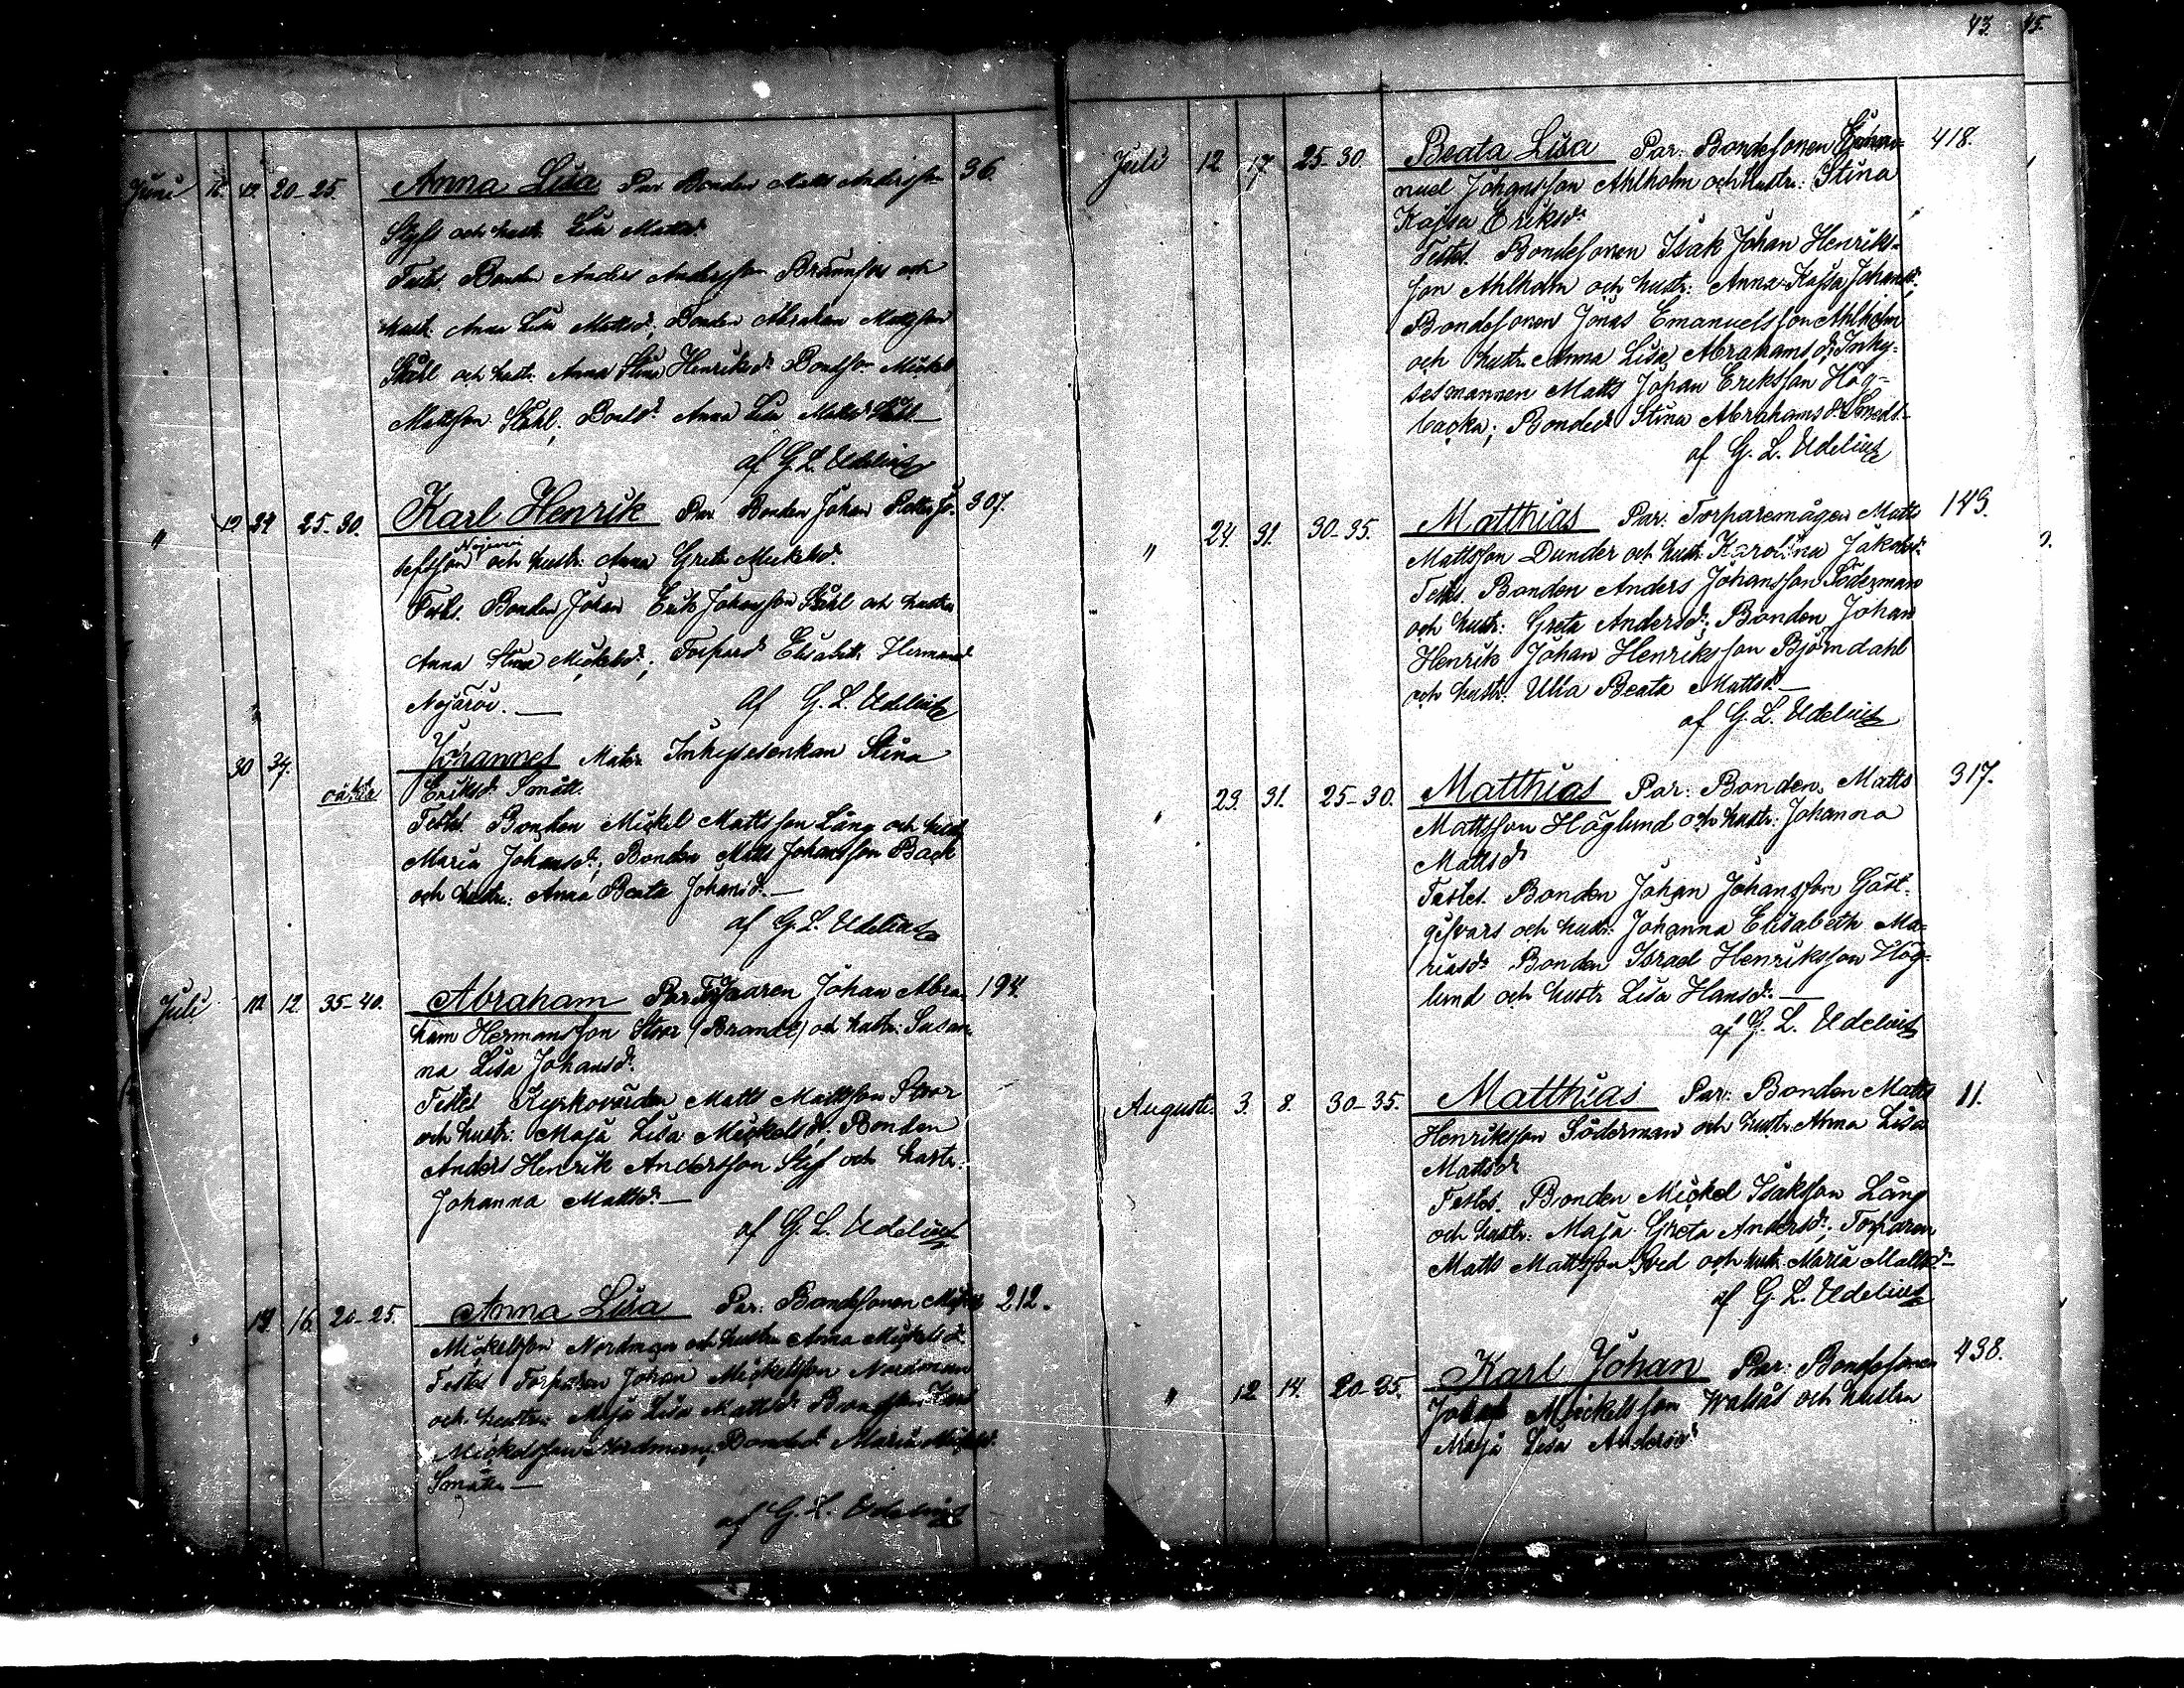 Juni 12. 20-25. Anna Lisa Par. Bonden Matts Andersson 36.
och hustr. Lisa Mattsdr
Testes. Bonden Anders Andersson Brännfors och
hust. Anna Lisa Mattsd. Bonden Abraham Mattsson
Ståhl och hustr. Anna Stina Henriksdr Bondson Mickel
Mattsson Ståhl, Anna Lisa
af G. L. Udelius
" 19 24 25-30. Karl Henrik Par Bonden Johan 307.
sefsson och hustr. Anna Greta Mickelsdr.
Testes. Bonden Johan Erik Johansson Ståhl och hustru
Anna Stina Mickelsd.; Elisabeth
Af G. L. Udelius
30 Johannes Mater. Inhysesenkan Stina
oäkta Eriksdr Smått.
Testes. Bonden Mickel Mattsson Lång och hust
Maria Johansd.; Bonden Matts Johansson Back
och hustru. Anna Beata Johansd. —
af G. L. Udelius
Juli 12. 35-40. Abraham Par Johan Abra- 194.
ham Hermansson Stoor (Brandt) och hustr: Susan-
na Lisa Johansd.
Testes Kyrkovärden Matts Mattsson Stoor
och hustr: Maja Lisa Mickelsdr. Bonden
Anders Henrik Andersson och hustr.
Johanna Mattsd. —
af G. L. Udelius
16. 20-25. Anna Lisa Par: Bondesonen 212.
Mickelsson Nordman och hustru Anna Mickelsd.
Testes Torparen Johan Mickelsson Nordman
och hustru Maja Lisa Mattsdr
Mickelsson Nordman; Maria
—
af G. L. Udelius
43. 45.
Juli 12. 17. 25-30 Beata Lisa Par: Bondesonen Emma- 418.
nuel Johansson Ahlholm och hustr: Stina
Kajsa Eriksdr
Testes. Bondesonen Isak Johan Henriks-
son Ahlholm och hustr: Anna Kajsa Johansd.;
Bondesonen Jonas Emanuelsson Ahlholm
och hustr. Anna Lisa Abrahamsd; Inhy-
sesmannen Matts Johan Eriksson Hög-
backa; Bonded. Stina Abrahamsd. Smeds-
af G. L. Udelius
" 24. 31. 30-35. Matthias Par: Torparemågen Matts 143.
Mattsson Dunder och hustr. Karolina Jakobsd.
Testes. Bonden Anders Johansson Söderman
och hustr: Greta Andersd; Bonden Johan
Henrik Johan Henriksson Björndahl
och hustr. Ulla Beata Mattsd. —
af G. L. Udelius
" 23. 31. 25-30. Matthias Par: Bonden Matts 317.
Mattsson Höglund och hustr: Johanna
Mattsdr
Testes. Bonden Johan Johansson Gäst-
gifvars och hustr: Johanna Elisabeth Ma-
riasdr. Bonden Israel Henriksson Hög-
lund och hustr Lisa Hansd. —
af G. L. Udelius
Augusti 3. 8. 30-35. Matthias Par: Bonden Matts 11.
Henriksson Söderman och hustr. Anna Lisa
Mattsdr
Testes. Bonden Mickel Isaksson Lång
och hustr: Maja Greta Andersd.; Torparen
Matts Mattsson Sved och hust. Maria Mattsd.—
af G. L. Udelius
" 12 14. 20-25. Karl Johan Par: Bondesonen 438.
Mickelsson och hustru
Maja Lisa Andersdr